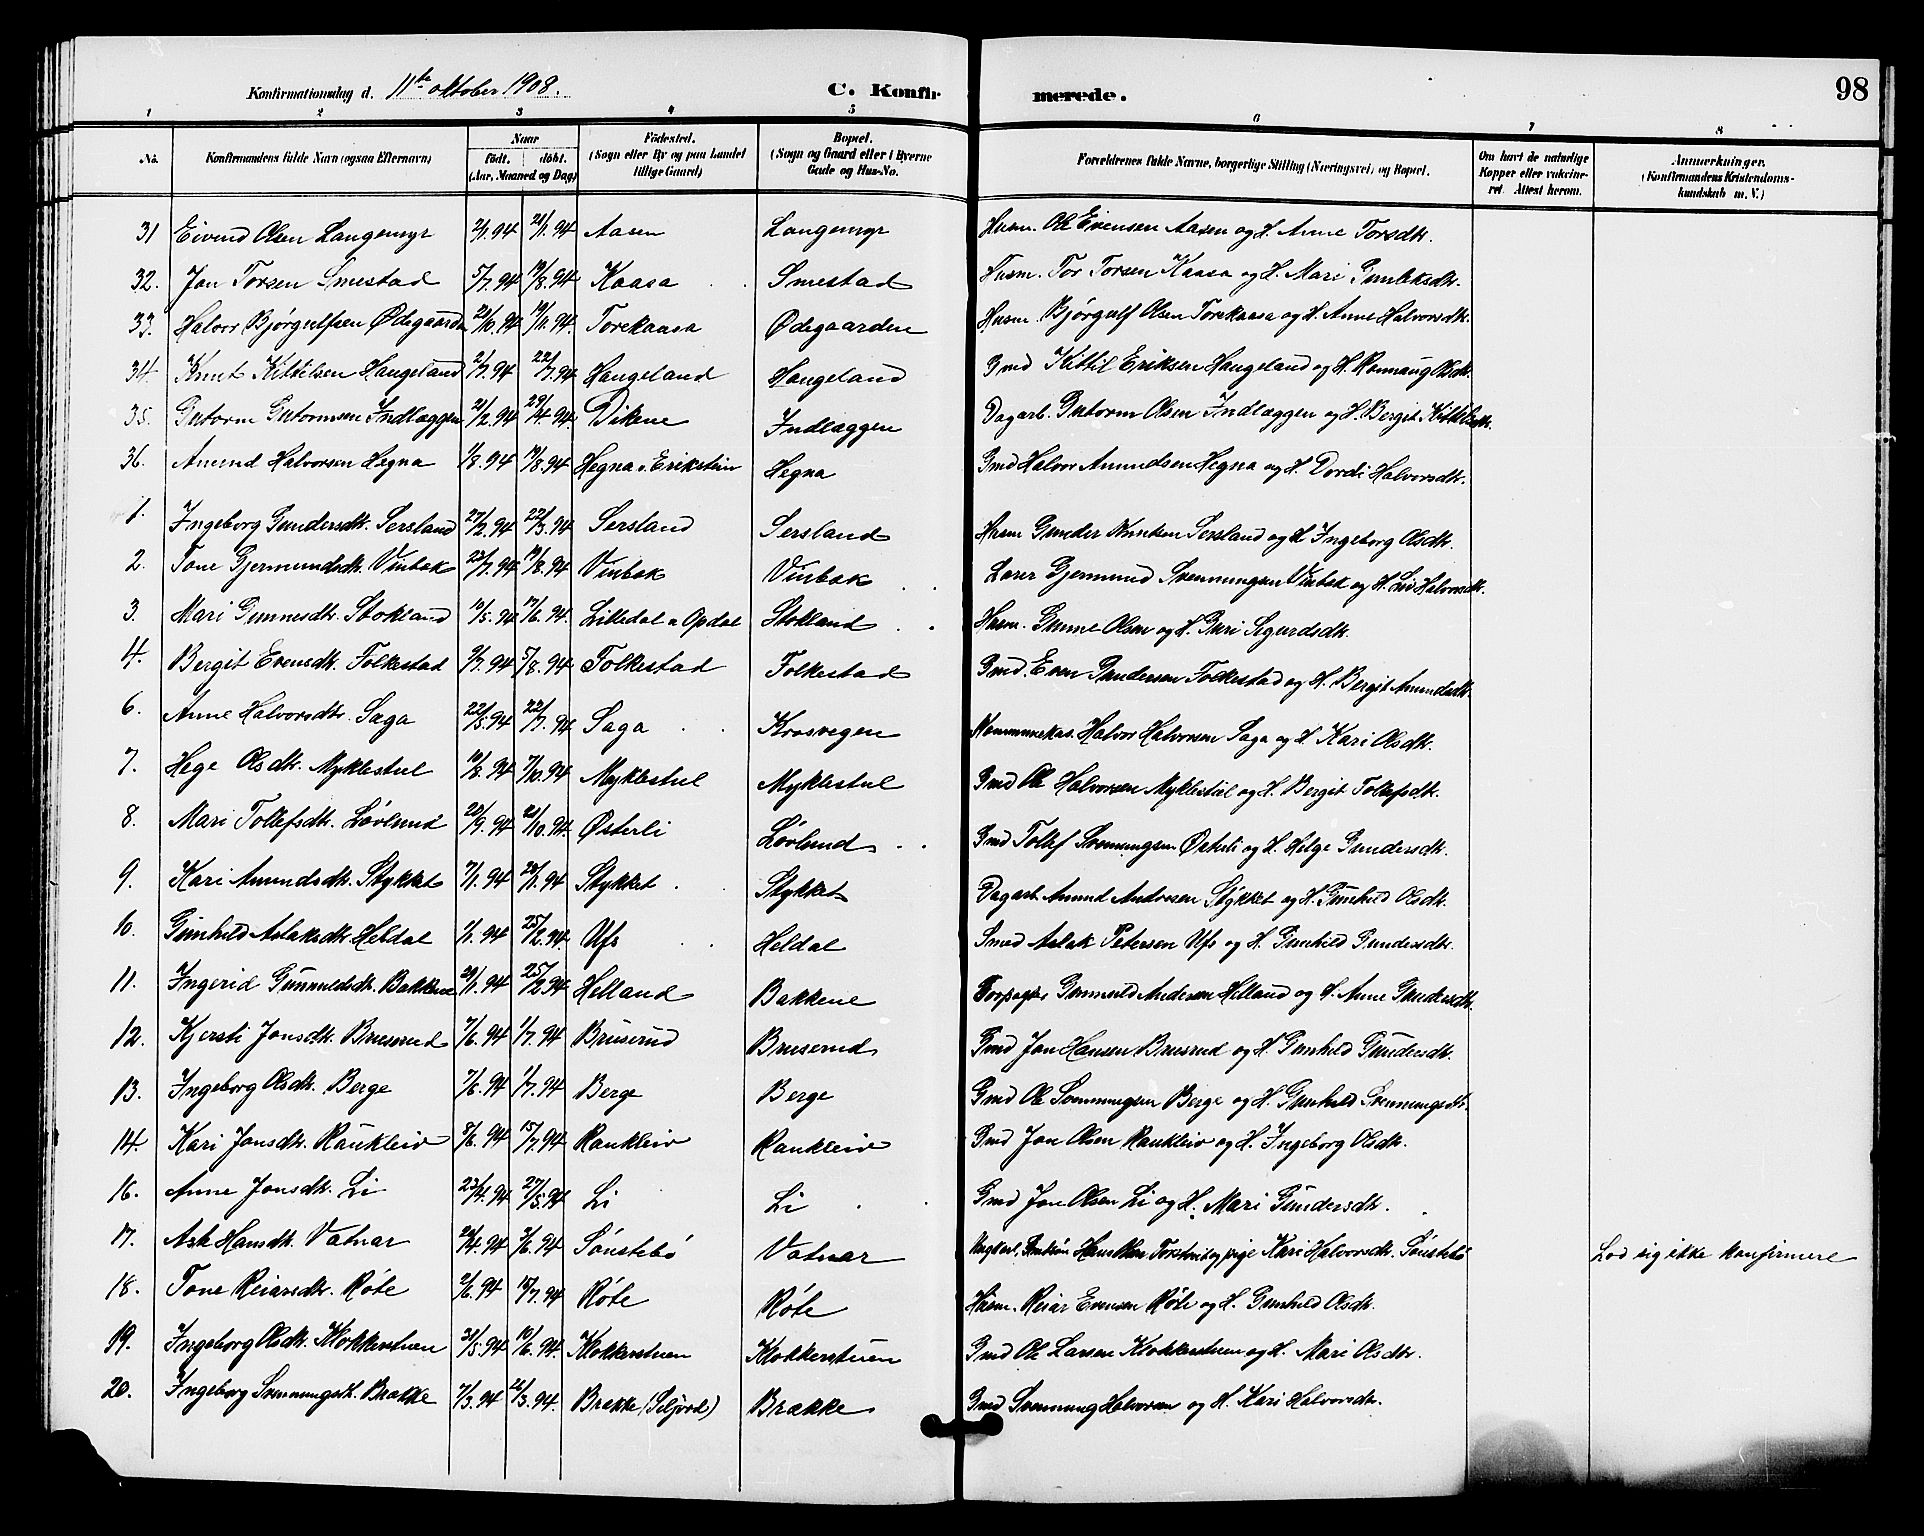 Konfirmationsdag d. 11te oktober 1908. C. Konfirmerede. 98
1 2 3 4 5 6 7 8
No. Konfirmandens fulde Navn (ogsaa Efternavn) Naar født. døbt. (Aar, Maaned og Dag) Födested. (Sogn eller By og paa Landet tillige Gaard) Bopæl. (Sogn og Gaard eller i Byerne Gade og Hus-No. Forældrenes fulde Navne, borgerlige Stilling (Næringsvei) og Bopæl. Om havt de naturlige Kopper eller vakcineret. Attest herom. Anmærkninger. (Konfirmandens Kristendomskundskab m. V.)
31 Eivind Olsen Langemyr 2/1.94 21/1.94 Aasen Langemyr Husm. Ole Evensen Aasen og H. Anne Torsdtr.
32. Jon Torsen Smestad 5/7.94 19/8.94 Kaasa Smestad Husm. Tor Torsen Kaasa og H. Mari Gunleksdtr.
33. Halvor Bjørgulfsen Ødegaarden 21/10.94 19/11.94. Torekaasa Ødegaarden Husm. Bjørgulf Olsen Torekaasa og H. Anne Halvorsdtr.
34. Knut Kittelsen Haugeland 2/7.94 22/7.94 Haugeland Haugeland Gmd Kittil Eriksen Haugeland og H. Rannaug Olsdtr.
35. Gutorm Gutormsen Indlæggen 21/2.94 29/4.94 Dikene Indlæggen Dagarb. Gutorm Olsen Indlæggen og H. Bergit Kittelsdtr.
36. Amund Halvorsen Hegna 1/8.94 19/8.94 Hegna u. Erikstein Hegna Gmd Halvor Amundsen Hegna og H. Dordi Halvorsdtr.
1. Ingeborg Gundersdtr. Sersland 27/2.94 22/3.94 Sersland Sersland Husm Gunder Knutsen Sersland og H Ingeborg Olsdtr.
2. Tone Gjermundsdtr. Vinbak 23/7.94 19/8.94 Vinbak Vinbak Lærer Gjermund Svenningsen Vinbak og H. Liv Halvorsdtr.
3. Mari Gunnesdtr. Stokland 12/5.94 17/6.94. Lilledal u Opdal Stokland Husm. Gunne Olsen og H. Guri Sigurdsdtr.
4. Bergit Evensdtr. Folkestad 9/7.94 5/8.94 Folkestad Folkestad Gmd. Even Gundersen Folkestad og H. Bergit Amundsdtr.
6. Anne Halvorsdtr. Saga 22/5.94 22/7.94 Saga Krosvegen Kommunekas. Halvor Halvorsen Saga og H. Kari Olsdtr.
7. Hege Olsdtr. Myklestul 19/8.94 7/10.94 Myklestul Myklestul Gmd Ole Halvorsen Myklestul og H. Bergit Tollefsdtr.
8. Mari Tollefsdtr. Lövlund 20/9.94 21/10.94. Østerli Lövlund Gmd Tollef Svenningsen Østerli og H. Helge Gundersdtr.
9. Kari Amundsdtr. Stykket 7/1.94 28/1.94 Stykket Stykket Dagarb. Amund Andresen Stykket og H. Gunhild Olsdtr.
10. Gunhild Aslaksdtr. Heldal 1/1.94 25/2.94 Ufs Heldal Smed Aslak Petersen Ufs og H. Gunhild Gundersdtr.
11. Ingerid Gunnuldsdtr. Bakkene 29/1.94 25/2.94 Helland Bakkene Forpagter Gunnuld Andersen Helland og H. Anne Gundersdtr.
12. Kjersti Jonsdtr. Bruserud 7/6.94 1/7.94 Bruserud Bruserud Gmd Jon Hansen Brusrud og H. Gunhild Gundersdtr.
13. Ingeborg Olsdtr. Berge 7/6.94 1/7.94 Berge Berge Gmd Ole Svenningsen Berge og H. Gunhild Svenningsdtr.
14. Kari Jonsdtr. Raukleiv 8/6.94 15/7.94 Raukleiv Raukleiv Gmd Jon Olsen Raukleiv og H. Ingeborg Olsdtr.
16. Anne Jonsdtr. Li 23/4.94 27/5.94 Li Li Gmd Jon Olsen Li og H. Mari Gundersdtr.
17. Ask Hansdtr. Vatnar 29/4.94 3/6.94 Sönstebö Vatnar Ungkarl, Hans Olsen og pige Kari Halvorsdtr. Sönstebö Lod sig ikke konfirmere
18. Tone Reiarsdtr. Röte 2/6.94 15/7.94 Röte Röte Husm. Reiar Evensen Röte og H. Gunhild Olsdtr.
19. Ingeborg Olsdtr. Klokkerstuen 31/5.94 10/6.94. Klokkerstuen Klokkerstuen Gmd Ole Larsen Klokkerstuen og H. Mari Olsdtr.
20. Ingeborg Svenningsdtr. Brække 7/3.94 26/3.94. Brække (Seljord) Brække Gmd Svenning Halvorsen og H. Kari Halvorsdtr.